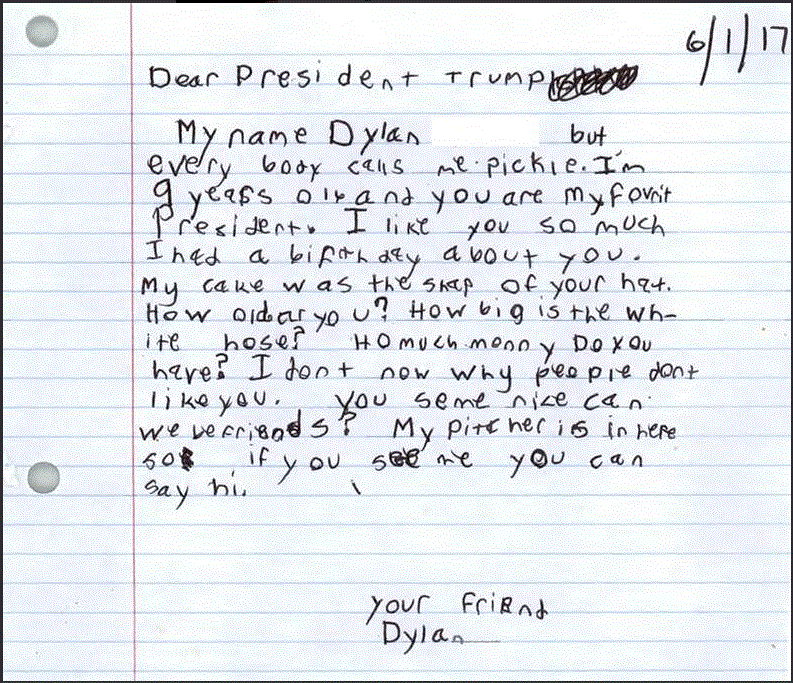 6/1/17
Dear President Trump
My name Dylan but
every body calls me pickle. I'm
9 years old and you are my fovrit
President. I like you so much
I had a birthday about you.
My cake was the shap of your hat.
How old ar you? How big is the wh-
ite hose? Ho much monny Do you
have? I don't now why people dont
like you. You seme nice can
we be friends? My pitcher is in here
so if you see me you can
say hi.
your friend
Dylan